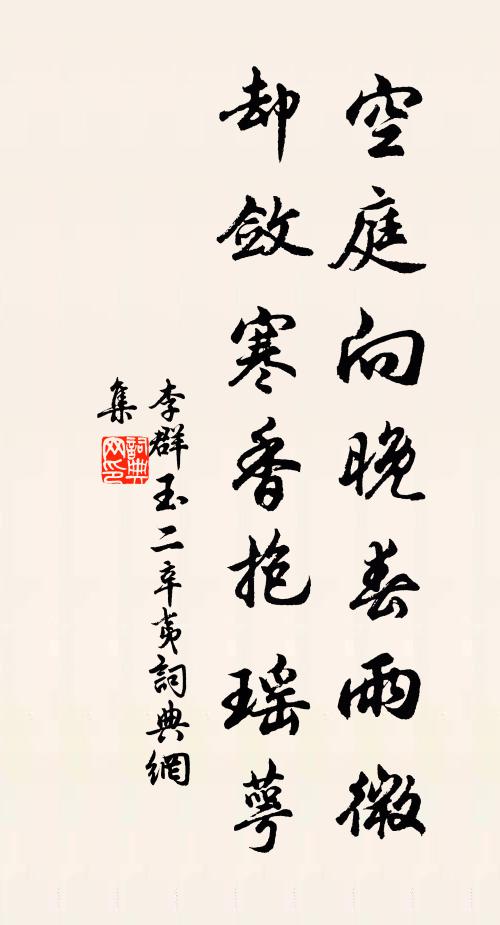 空庭向晚春雨微
却斂寒香抱瑶萼
李群玉二辛夷詞典網
集
詞典网印